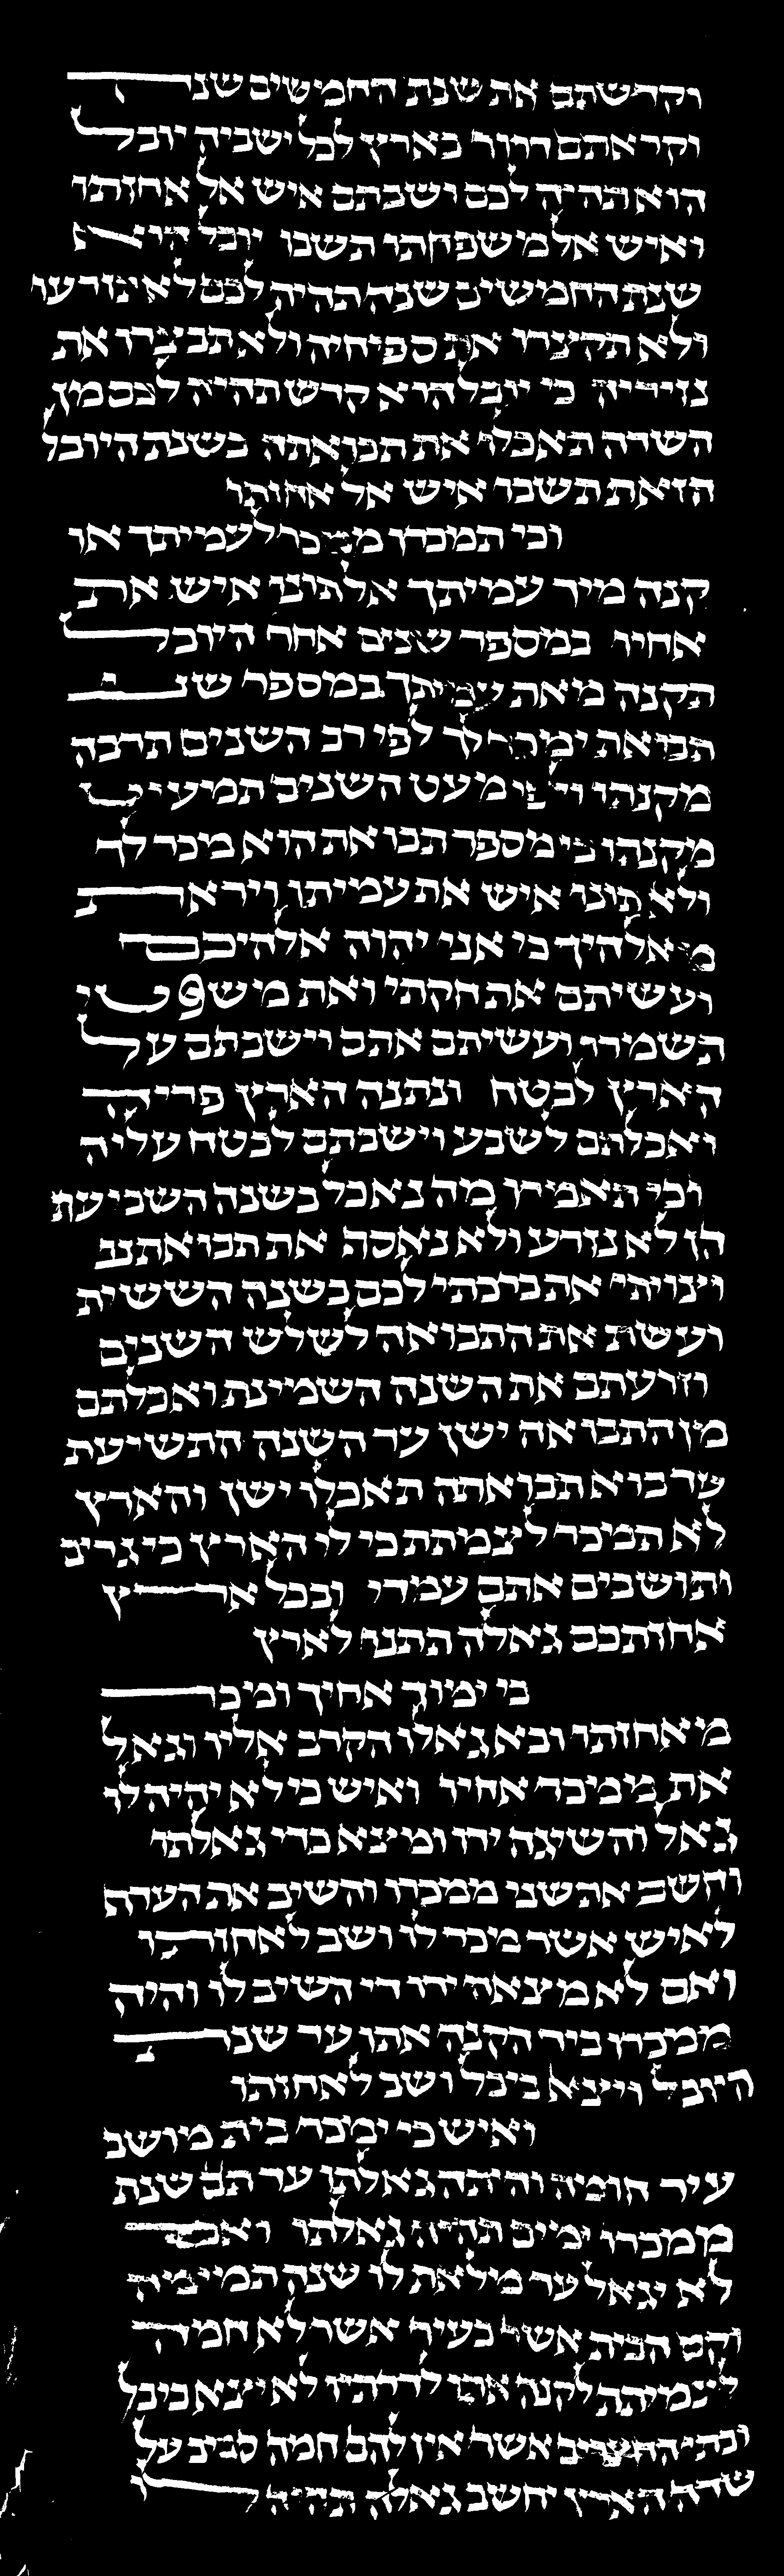 וקדשתם את שנת החמשים שנה
וקראתם דרור בארץ לכל ישביה יובל
הוא תהיה לכם ושבתם איש אל אחזתו
ואיש אל משפחתו תשבו יובל הוא
שנת החמישים שנה תהיה לכם לא תזרעו
ולא תקצרו את ספיחיה ולא תבצרו את
נזיריה כי יובל הוא קדש תהיה לכם מן
השדה תאכלו את תבואתה בשנת היובל
הזאת תשבו איש אל אחזתו
וכי תמכרו ממכר לעמיתך או
קנה מיד עמיתך אל תונו איש את
אחיו במספר שנים אחר היובל
תקנה מאת עמיתך במספר שני
תבואת ימכר לך לפי רב השנים תרבה
מקנתו ולפי מעט השנים תמעיט
מקנתו כי מספר תבואת הוא מכר לך
ולא תונו איש את עמיתו ויראת
מאלהיך כי אני יהוה אלהיכם
ועשיתם את חקתי ואת משפטי
תשמרו ועשיתם אתם וישבתם על
הארץ לבטח ונתנה הארץ פריה
ואכלתם לשבע וישבתם לבטח עליה
וכי תאמרו מה נאכל בשנה השביעת
הן לא נזרע ולא נאסף את תבואתנו
וצויתי את ברכתי לכם בשנה הששית
ועשת את התבואה לשלש השנים
וזרעתם את השנה השמינת ואכלתם
מן התבואה ישן עד השנה התשיעת
עד בוא תבואתה תאכלו ישן והארץ
לא תמכר לצמתת כי לי הארץ כי גרים
ותושבים אתם עמדי ובכל ארץ
אחזתכם גאלה תתנו לארץ
כי ימוך אחיך ומכר
מאחזתו ובא גאלו הקרב אליו וגאל
את ממכר אחיו ואיש כי לא יהיה לו
גאל והשיגה ידו ומצא כדי גאלתו
וחשב את שני ממכרו והשיב את העדף
לאיש אשר מכר לו ושב לאחזתו
ואם לא מצאה ידו די השיב לו והיה
ממכרו ביד הקנה אתו עד שנת
היובל ויצא ביבל ושב לאחזתו
ואיש כי ימכר בית מושב
עיר חומה והיתה גאלתו עד תם שנת
ממכרו ימים תהיה גאלתו ואם
לא יגאל עד מלאת לו שנה תמימה
וקם הבית אשר בעיר אשר לא חמה
לצמיתת לקנה אתו לדרתיו לא יצא ביבל
ובתי החצרים אשר אין להם חמה סביב על
שדה הארץ יחשב גאלה תהיה לו